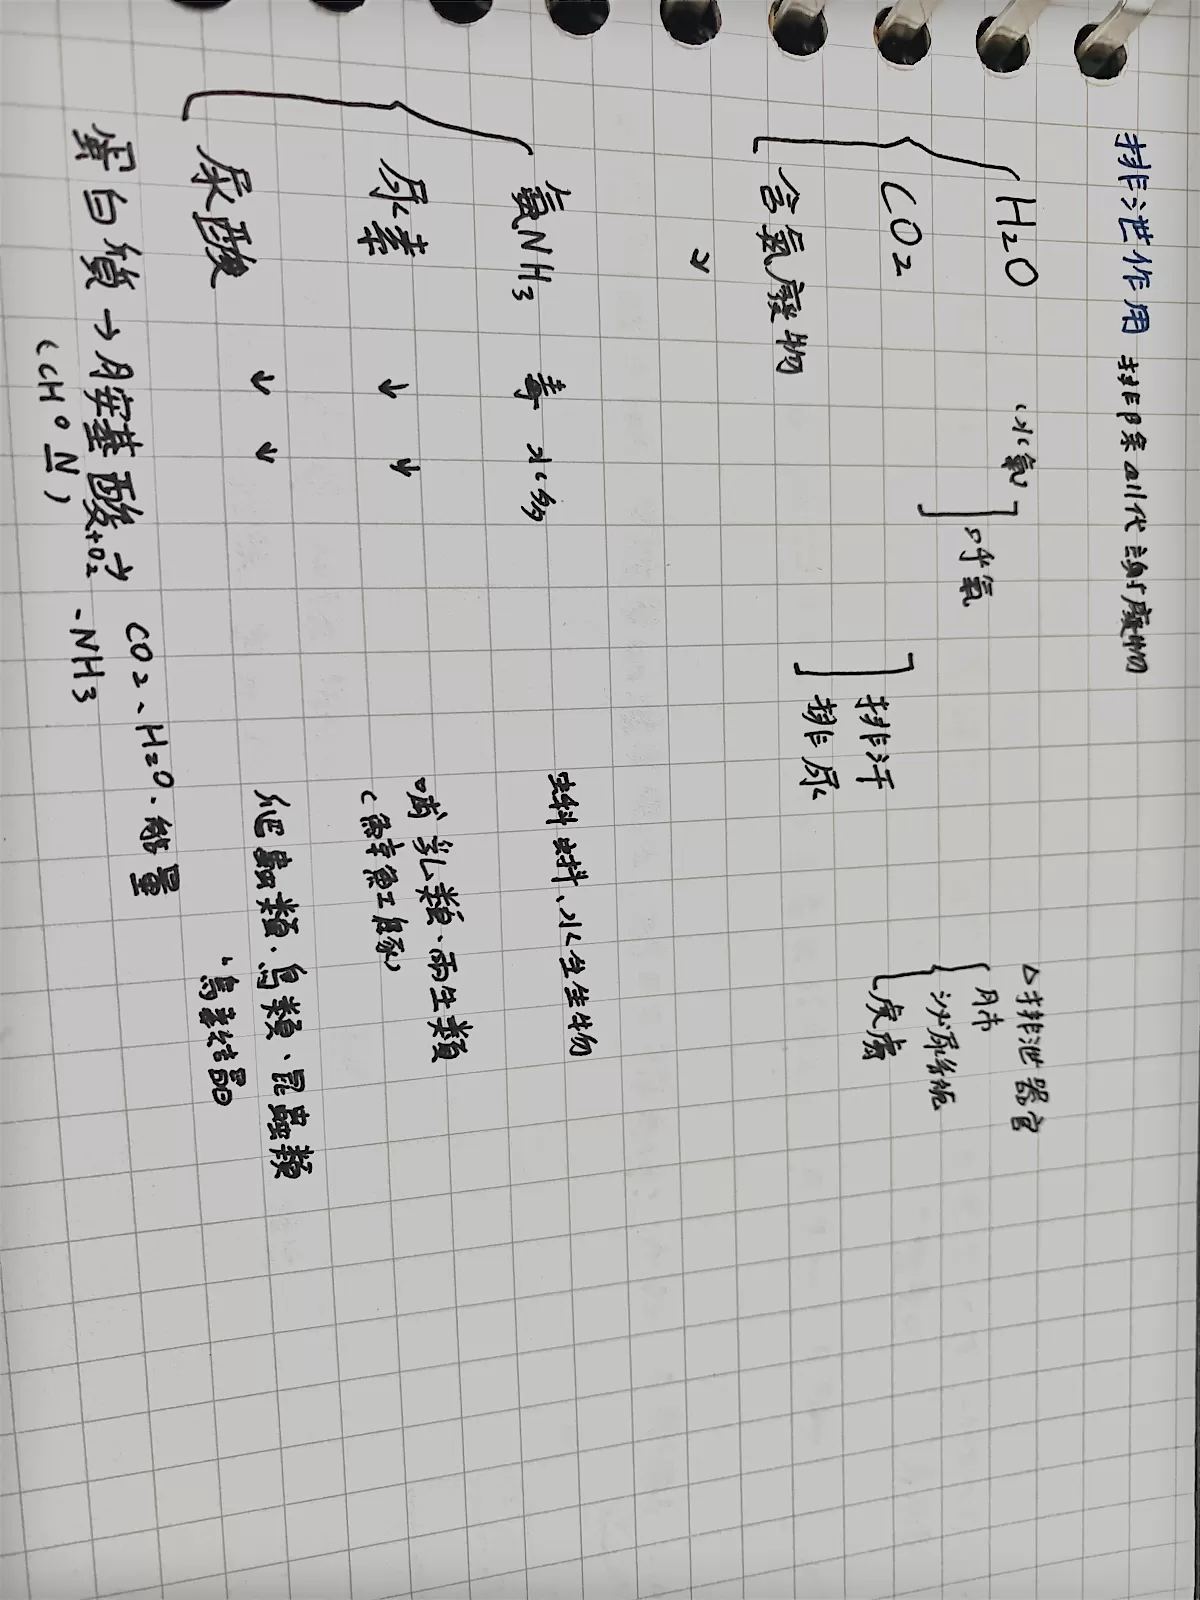 排泄作用 排除all代謝廢物
H₂O (水氣
CO₂ ] 呼氣
含氮廢物 ] 排汗
排尿
△排泄器官
肺
泌尿系統
皮膚
↓
氨NH₃ 毒 水多 蝌蚪、水生生物
尿素 ↓ ↓ 哺乳類、兩生類
尿酸 ↓ ↓ 爬蟲類、鳥類、昆蟲類
蛋白質→胺基酸→ CO₂、H₂O、能量
+O₂
(CHON) -NH₃